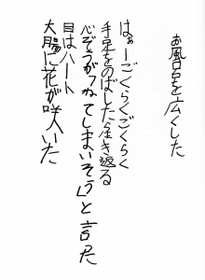 お風呂を広くした
はぁーごくらくごくらく
手足をのばした生き返る
心ぞうが てしまいそう」と言った
目はハート
大腸に花が咲いた